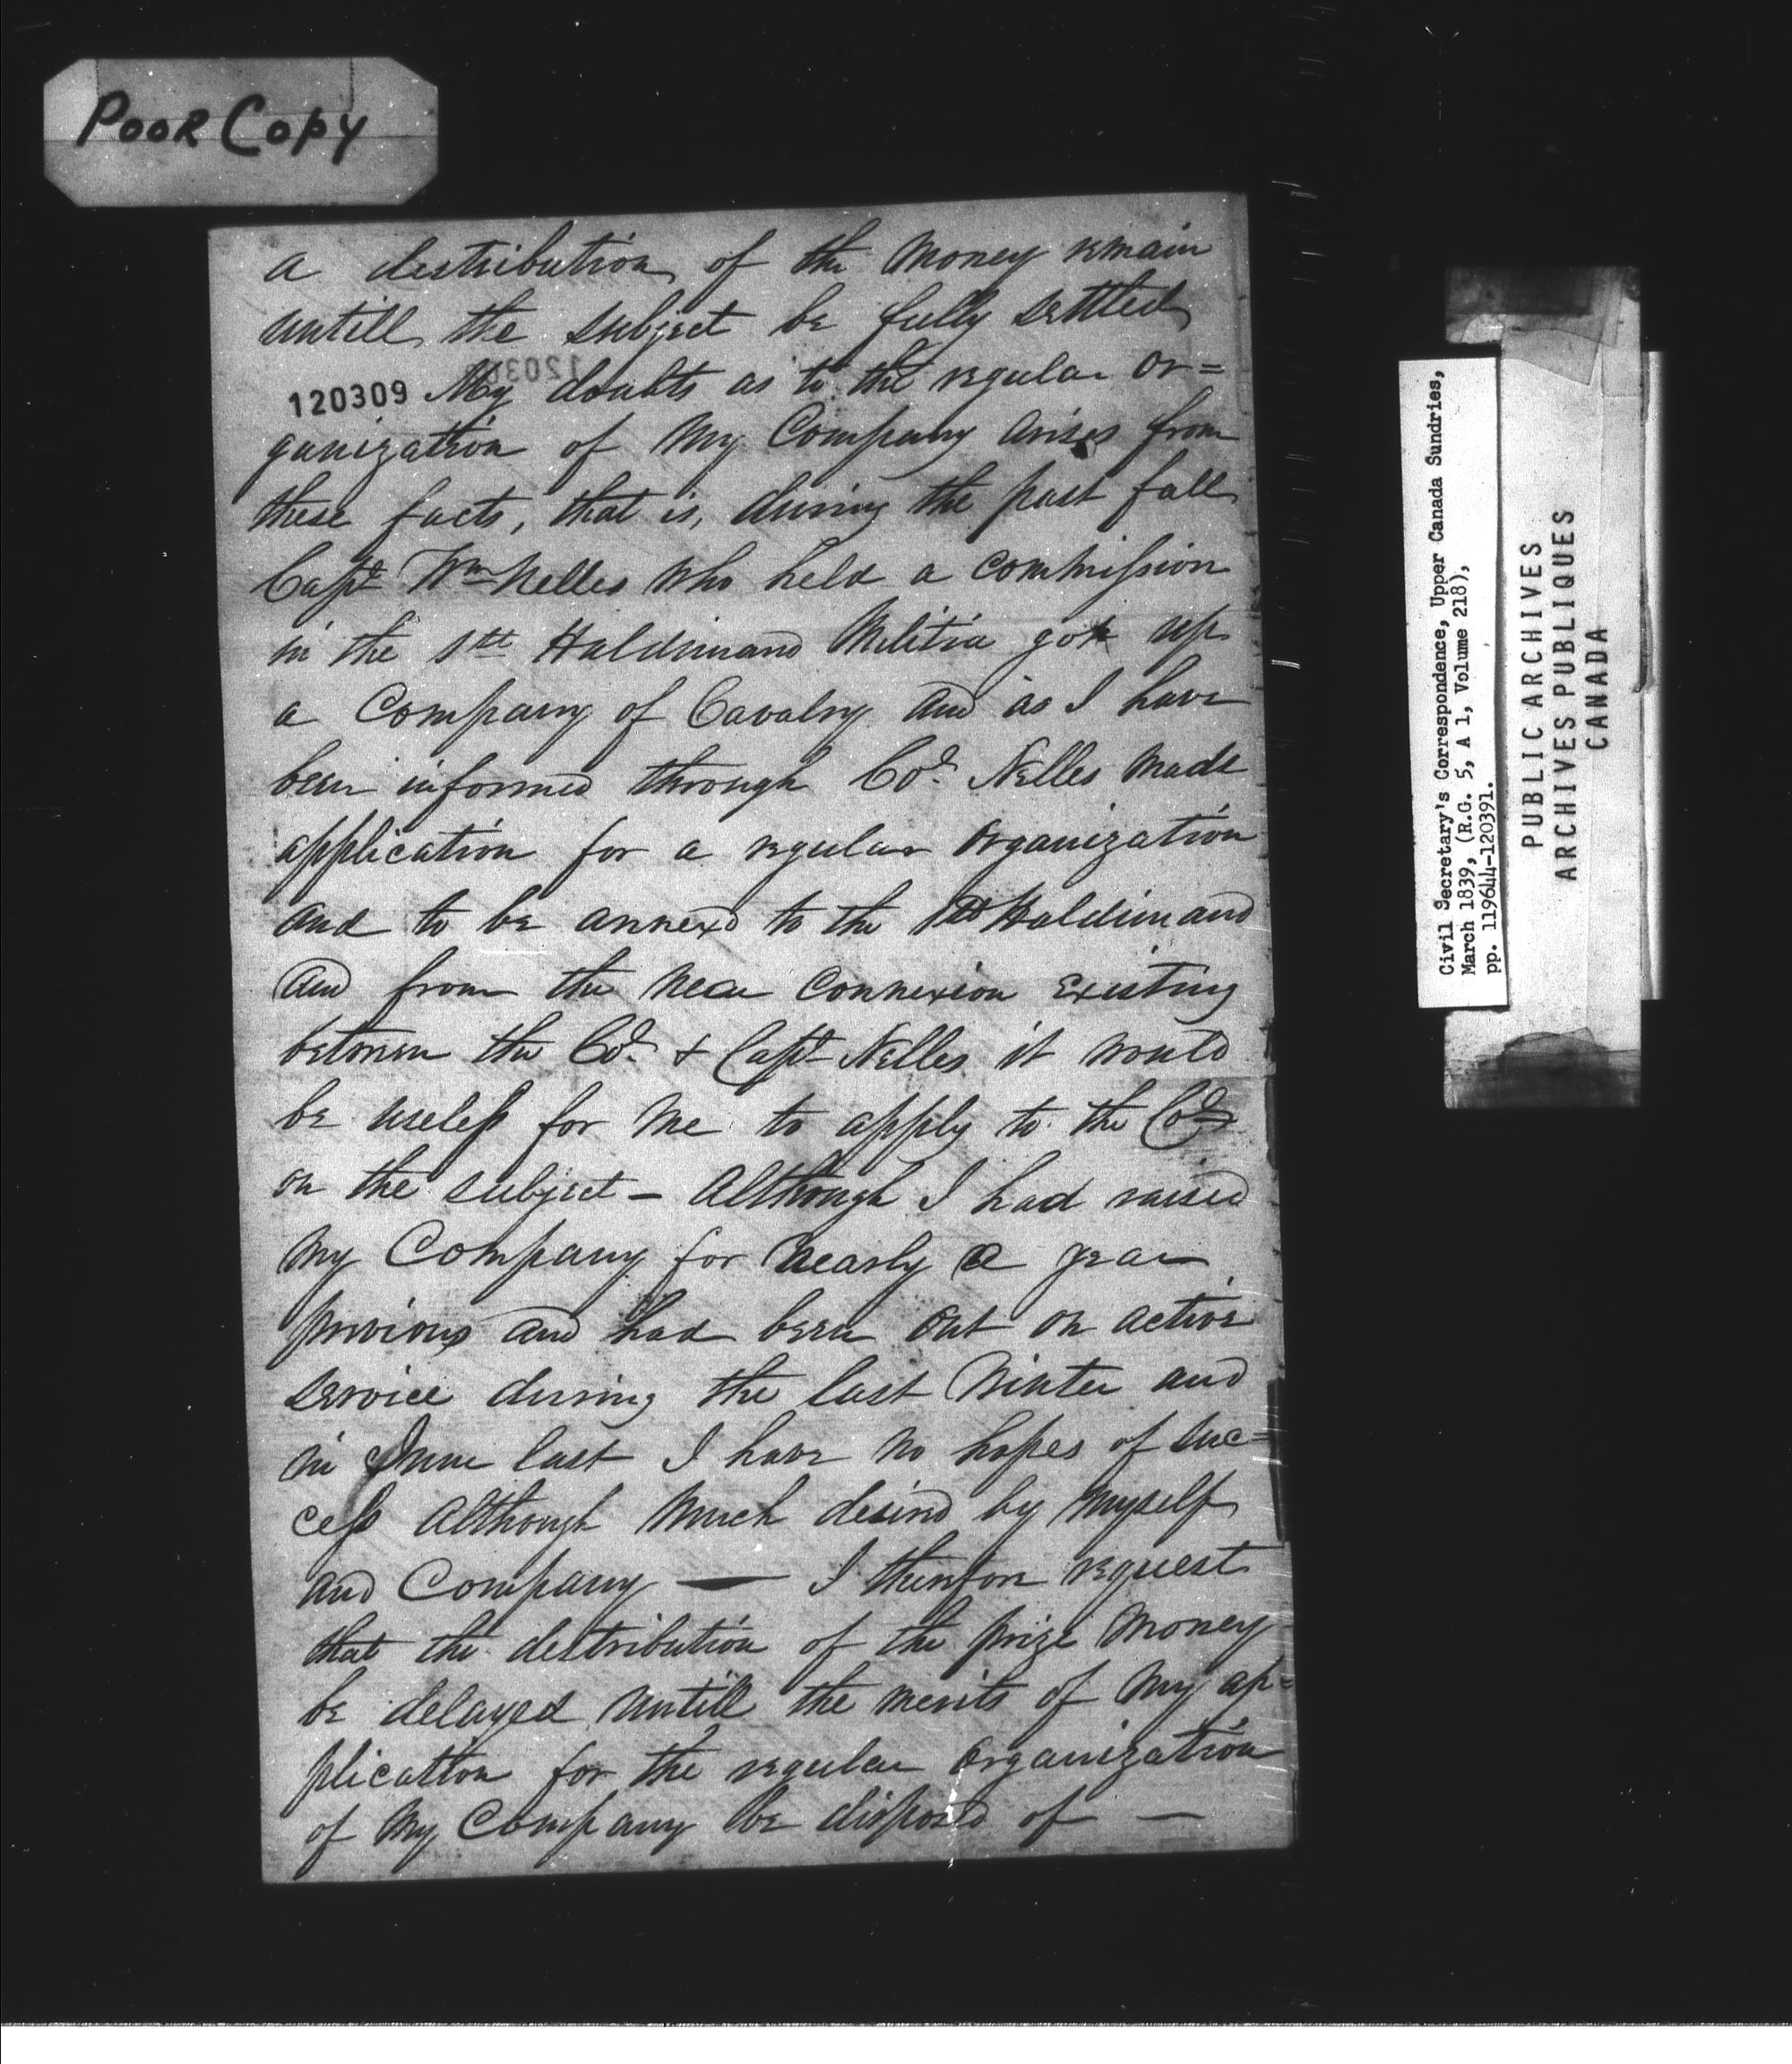 POOR COPY
a distribution of the Money remain
untill the subject be fully settled
120309 My doubts as to the regular or=
ganization of My Company arises from
these facts, that is, during the past fall
Capt Wm Nelles who held a commission
in the 1st Haldimand Militia got up
a Company of Cavalry and as I have
been informed through Col. Nelles Made
application for a regular Organization
and to be annexd to the 1st Haldimand
and from the near Connexion Existing
between the Col. & Capt Nelles it would
be useless for Me to apply to the Col.
on the subject — Although I had raised
My Company for Nearly a year
previous and had been out on active
service during the last Winter and
in June last I have no hopes of suc=
cess Although Much desired by Myself
and Company — I therefore request
that the distribution of the prize Money
be delayed untill the merits of My ap=
plication for the regular Organization
of My Company be disposed of —
Civil Secretary's Correspondence, Upper Canada Sundries,
March 1839, (R.G. 5, A 1, Volume 218),
pp. 119644-120391.
PUBLIC ARCHIVES
ARCHIVES PUBLIQUES
CANADA